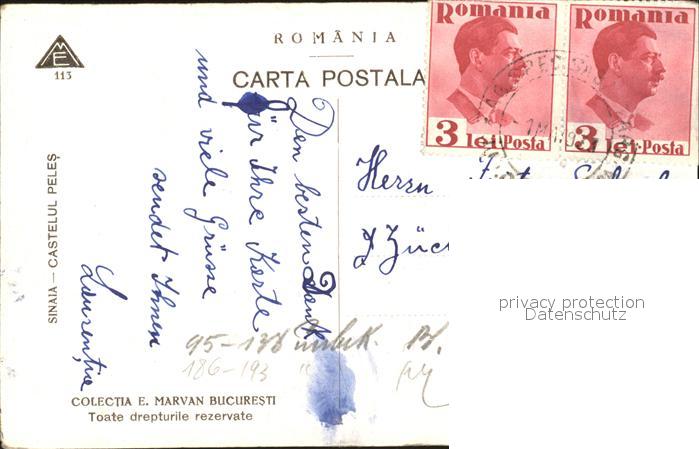 ME
113
ROMÂNIA
CARTA POSTALA
SINAIA — CASTELUL PELEȘ
Den besten Dank
für Ihre Karte
und viele Grüsse
sendet Ihnen
Laurenția
Herrn
Züc
95-138 unbek.
186-193
COLECȚIA E. MARVAN BUCUREȘTI
Toate drepturile rezervate
Romania
3 lei Posta
Romania
3 lei Posta
privacy protection
Datenschutz